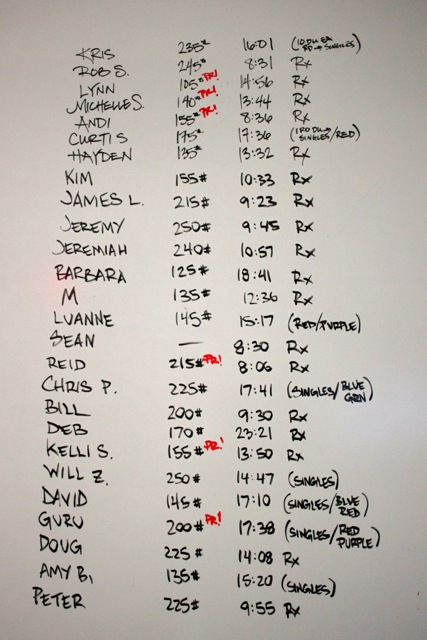 KRIS 235# 16:01 (10 DU EA RD → SINGLES)
ROB S. 245# 8:31 Rx
LYNN 105# PR! 14:56 Rx
MICHELLE S. 140# PR! 13:44 Rx
ANDI 155# PR! 8:36 Rx
CURTIS 175# 17:36 (100 DU → SINGLES/RED)
HAYDEN 135# 13:32 Rx
KIM 155# 10:33 Rx
JAMES L. 215# 9:23 Rx
JEREMY 250# 9:45 Rx
JEREMIAH 240# 10:57 Rx
BARBARA 125# 18:41 Rx
M 135# 12:36 Rx
LUANNE 145# 15:17 (RED/PURPLE)
SEAN — 8:30 Rx
REID 215# PR! 8:06 Rx
CHRIS P. 225# 17:41 (SINGLES/BLUE GRN)
BILL 200# 9:30 Rx
DEB 170# 23:21 Rx
KELLI S. 155# PR! 13:50 Rx
WILL Z. 250# 14:47 (SINGLES)
DAVID 145# 17:10 (SINGLES/BLUE RED)
GURU 200# PR! 17:38 (SINGLES/RED PURPLE)
DOUG 225# 14:08 Rx
AMY B. 135# 15:20 (SINGLES)
PETER 225# 9:55 Rx